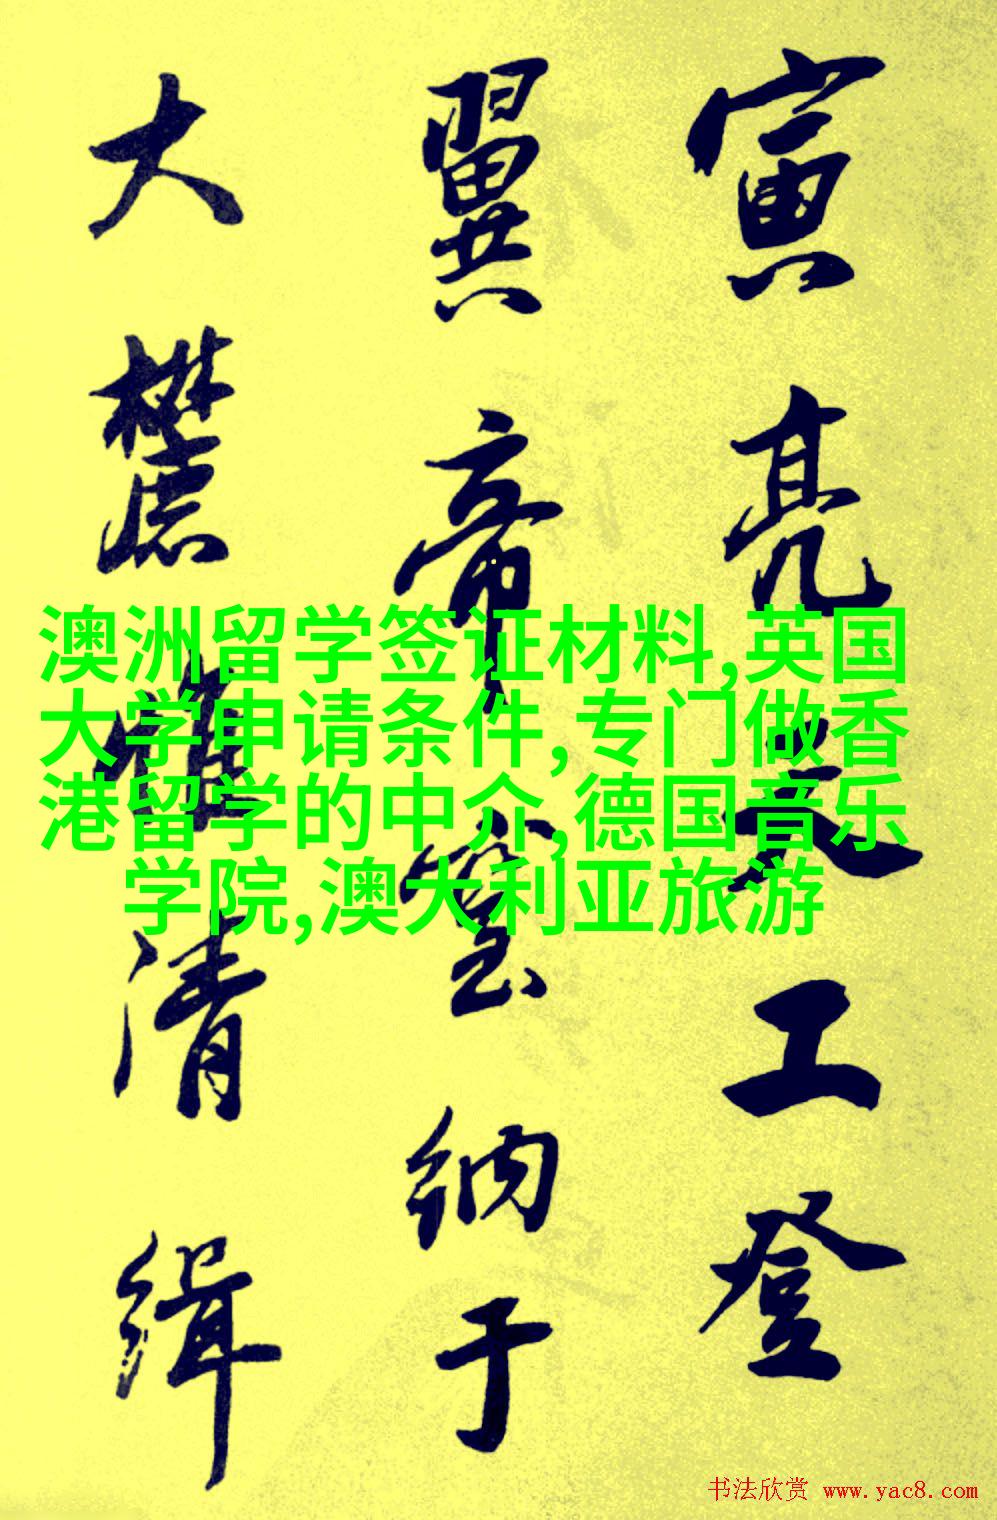 寅亮天工登
翼帝室納于
大麓惟清緝
澳洲留学签证材料,英国
大学申请条件,专门做香
港留学的中介,德国音乐
学院,澳大利亚旅游
书法欣赏 www.yac8.com